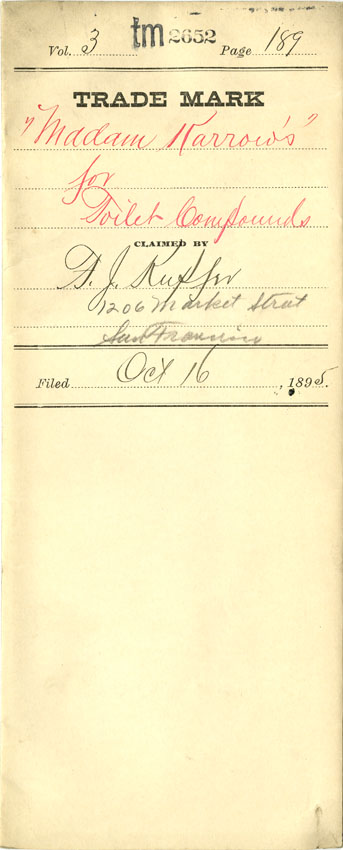 Vol. 3 tm 2652 Page 189
TRADE MARK
"Madam Karrow's"
for
Toilet Compounds
CLAIMED BY
F. J. Kuffer
1206 Market Street
San Francisco
Filed Oct 16, 1895.